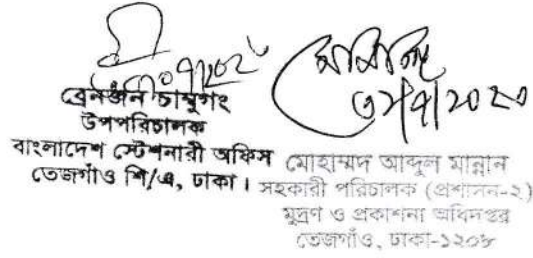 ব্রেনজন চাম্বুগং
উপপরিচালক
বাংলাদেশ স্টেশনারী অফিস
তেজগাঁও শি/এ, ঢাকা।
মোহাম্মদ আব্দুল মান্নান
সহকারী পরিচালক (প্রশাসন-২)
মুদ্রণ ও প্রকাশনা অধিদপ্তর
তেজগাঁও, ঢাকা-১২০৮